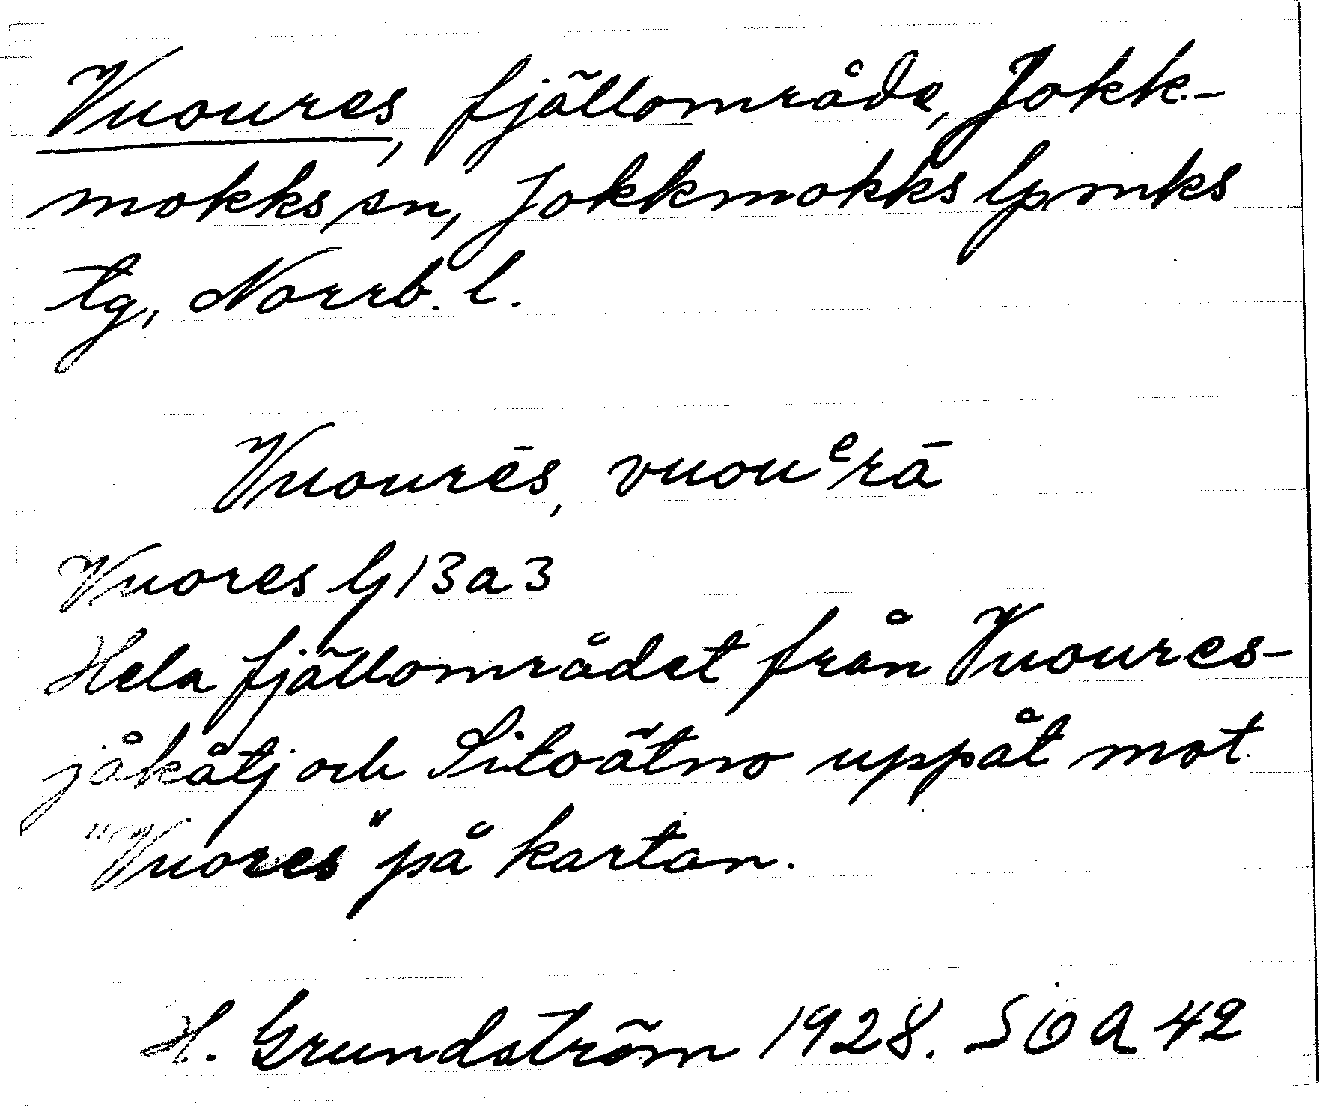 Vuoures, fjällområde, Jokk-
mokks sn, Jokkmokks lpmks
tg, Norrb. l.
Vuourēs, vuouᵉrā
Vuores G13a3
Hela fjällområdet från Vuoures-
jåkåtj och Sitoätno uppåt mot
"Vuores" på kartan.
H. Grundström 1928. SOA 42